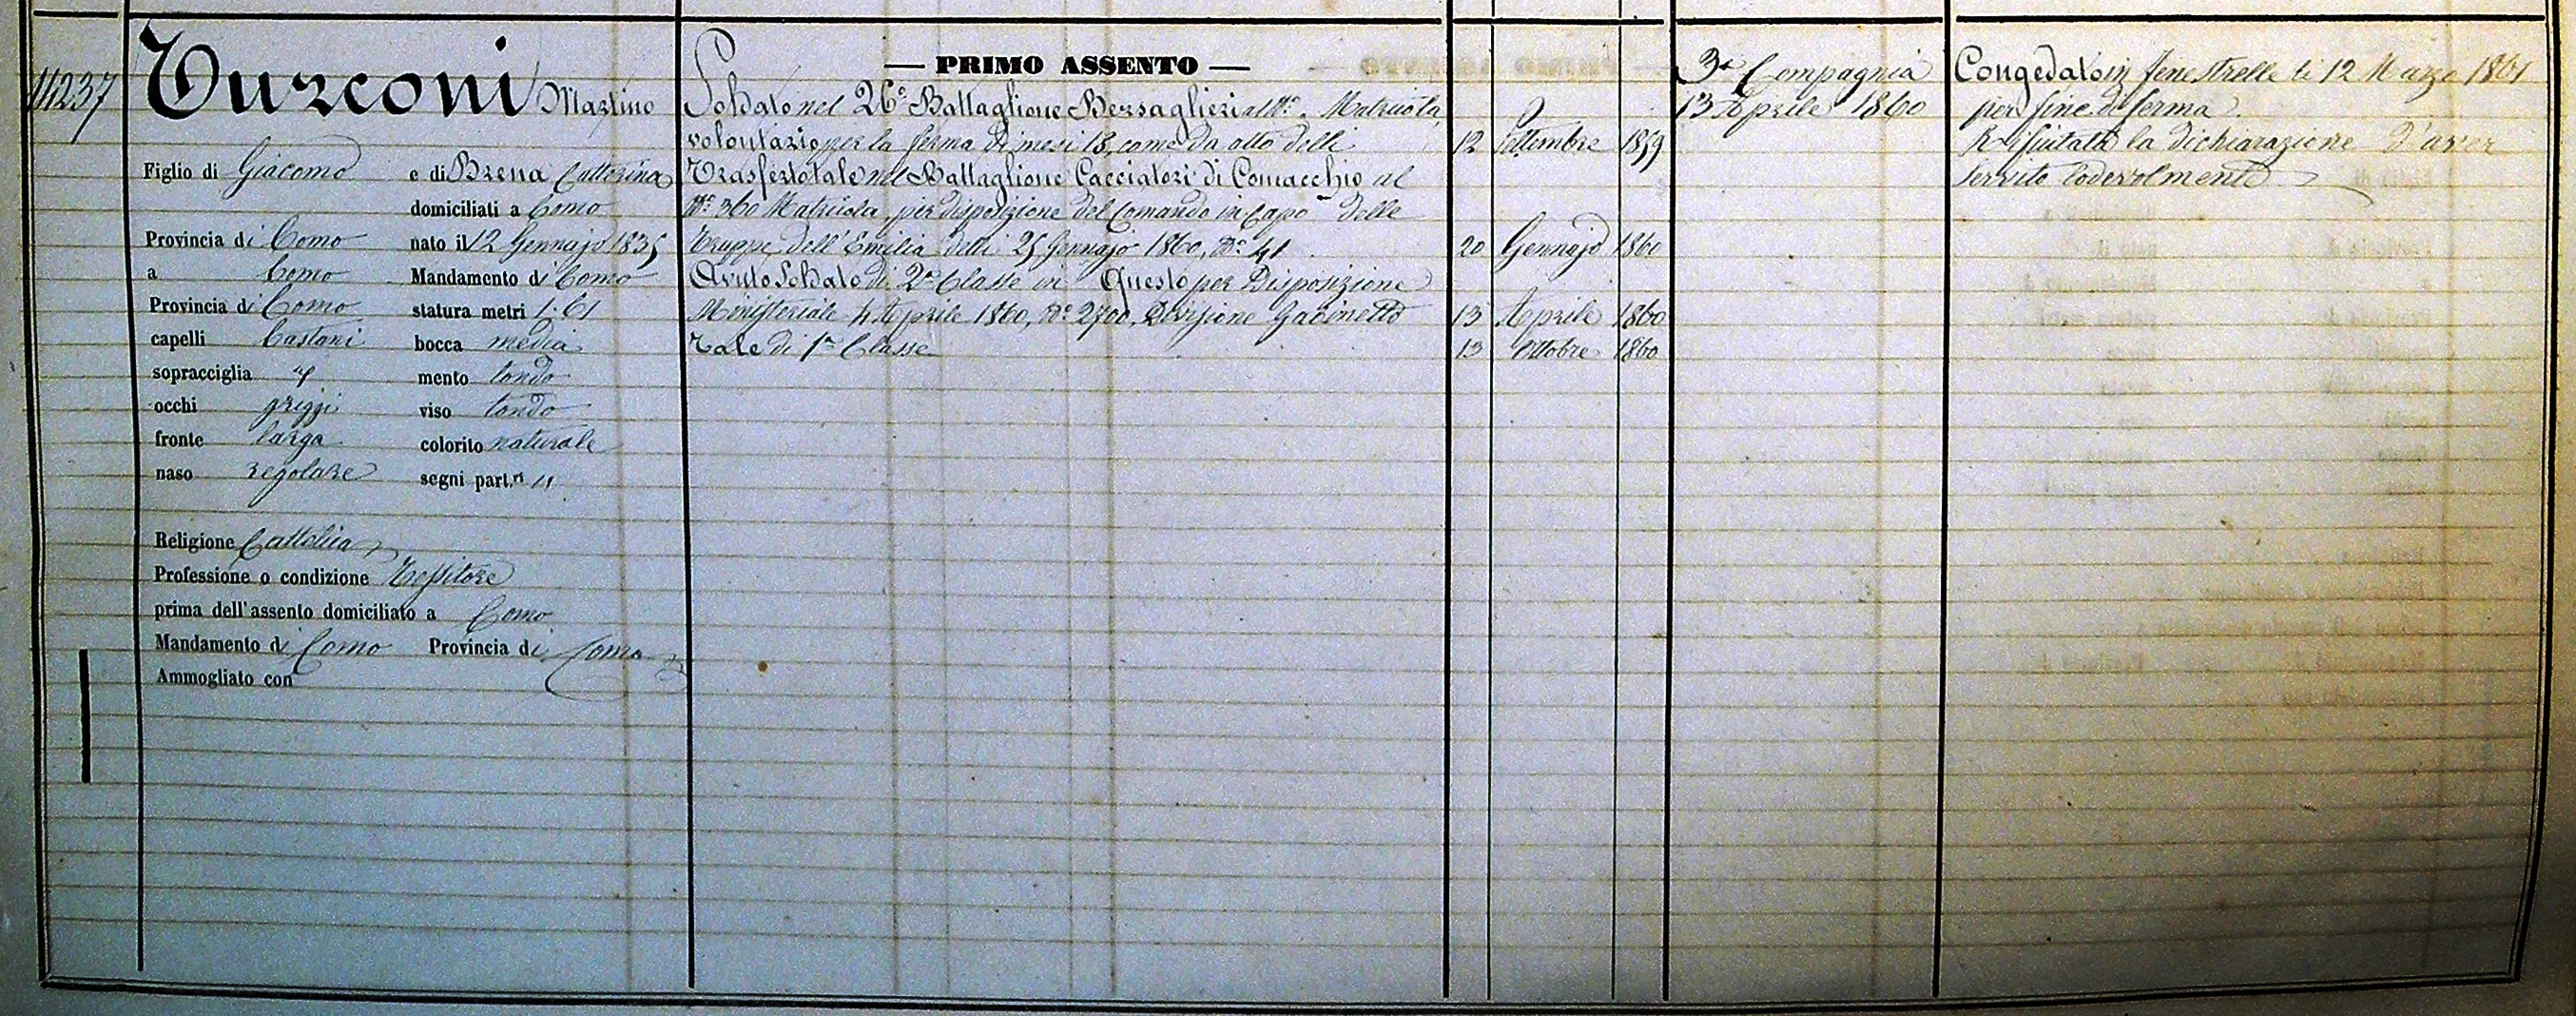 11237
Turconi Martino
Figlio di Giacomo e di Brena Catterina
domiciliati a Como
Provincia di Como nato il 12 Gennajo 1835
a Como Mandamento di Como
Provincia di Como statura metri 1.61
capelli Castani bocca media
sopracciglia " mento tondo
occhi griggi viso tondo
fronte larga colorito naturale
naso regolare segni part.ri "
Religione Cattolica
Professione o condizione Tessitore
prima dell'assento domiciliato a Como
Mandamento di Como Provincia di Como
Ammogliato con
— PRIMO ASSENTO —
Soldato nel 26° Battaglione Bersaglieri al N° . Matricola,
volontario per la ferma di mesi 18, come da atto delli 12 Settembre 1859
Trasferto tale nel Battaglione Cacciatori di Comacchio al
N° 360 Matricola, per disposizione del Comando in Capo delle
Truppe dell'Emilia delli 25 Gennajo 1860, N° 41 20 Gennajo 1860
Avuto Soldato di 2a Classe in Questo per Disposizione
Ministeriale 4 Aprile 1860, N° 2700, Divisione Gabinetto 13 Aprile 1860
Tale di 1a Classe 13 Ottobre 1860
3a Compagnia
13 Aprile 1860
Congedato in Fenestrelle li 12 Marzo 1861
per fine di ferma.
Rifiutata la dichiarazione d'aver
servito lodevolmente